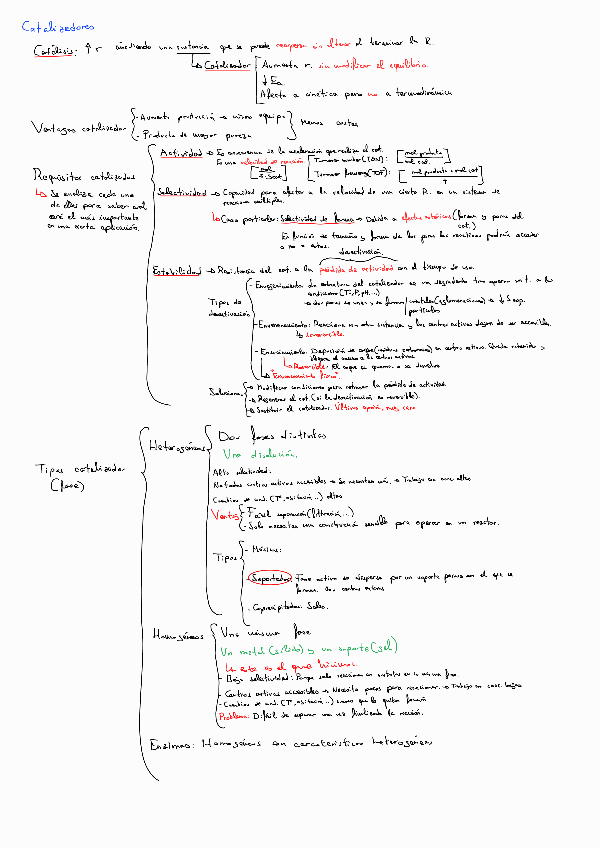 Catalizadores
Catálisis: ↑ r añadiendo una sustancia que se puede recuperar sin alterar al terminar la R.
↳ Catalizador
Aumenta r. sin modificar el equilibrio.
↓ Ea
Afecta a cinética pero no a termodinámica
Ventajas catalizador
- Aumenta producción → mismo equipo
- Productos de mayor pureza
Menos costes
Requisitos catalizador
↳ Se analiza cada uno de ellos para saber cual será el más importante en una cierta aplicación.
Actividad → Es consecuencia de la aceleración que realiza el cat.
Es una velocidad de reacción
Turnover number (TON):
mol producto
mol cat.
mol
s·gcat
Turnover frecuency (TOF):
mol producto · mol cat
T
Selectividad → Capacidad para afectar a la velocidad de una cierta R. en un sistema de reacciones múltiples.
↳ Caso particular: Selectividad de forma → Debida a efectos estéricos (forma y poros del cat.)
En función de tamaño y forma de los poros los reactivos podrán acceder o no a estos.
desactivación
Estabilidad → Resistencia del cat. a la pérdida de actividad con el tiempo de uso.
Tipos de desactivación
- Envejecimiento: la estructura del catalizador se va degradando tras operar un t. a las condiciones (Tª, P, pH...)
- Envenenamiento: Reacciona con otra sustancia y los centros activos dejan de ser accesibles.
↳ Irreversible.
- Ensuciamiento: Deposición de coque (residuos carbonosos) en centros activos.
↳ Reversible: El coque se quema o se disuelve
"Envenenamiento físico".
Soluciones
→ Modificar condiciones para retrasar la pérdida de actividad.
→ Regenerar el cat. (si la desactivación es reversible).
→ Sustituir el catalizador. Última opción, muy caro
Tipos catalizador
(fase)
Heterogéneos
Dos fases distintas
Una disolución.
Alta selectividad.
No todos centros activos accesibles → Se necesitan más → Trabajo en conc. altas
Cambios de cond. (Tª, agitación...) altos
Ventajas
- Fácil separación (filtración...)
- Solo necesitas una construcción sencilla para operar en un reactor.
Tipos
- Másicos:
- Soportados: Fase activa se dispersa por un soporte poroso en el que se forman los centros activos
- Coprecipitados: Sales.
Homogéneos
Una misma fase
Un metal (sólido) y un soporte (sol)
↳ este es el que hicimos
- Baja selectividad: Porque solo reacciona en
- Centros activos accesibles → Necesita pocos para reaccionar → Trabajo en conc. bajas
- Cambios de cond. (Tª, agitación...)
Problema: Difícil de separar una vez finalizada la reacción.
Enzimas: Homogéneos con características heterogéneos